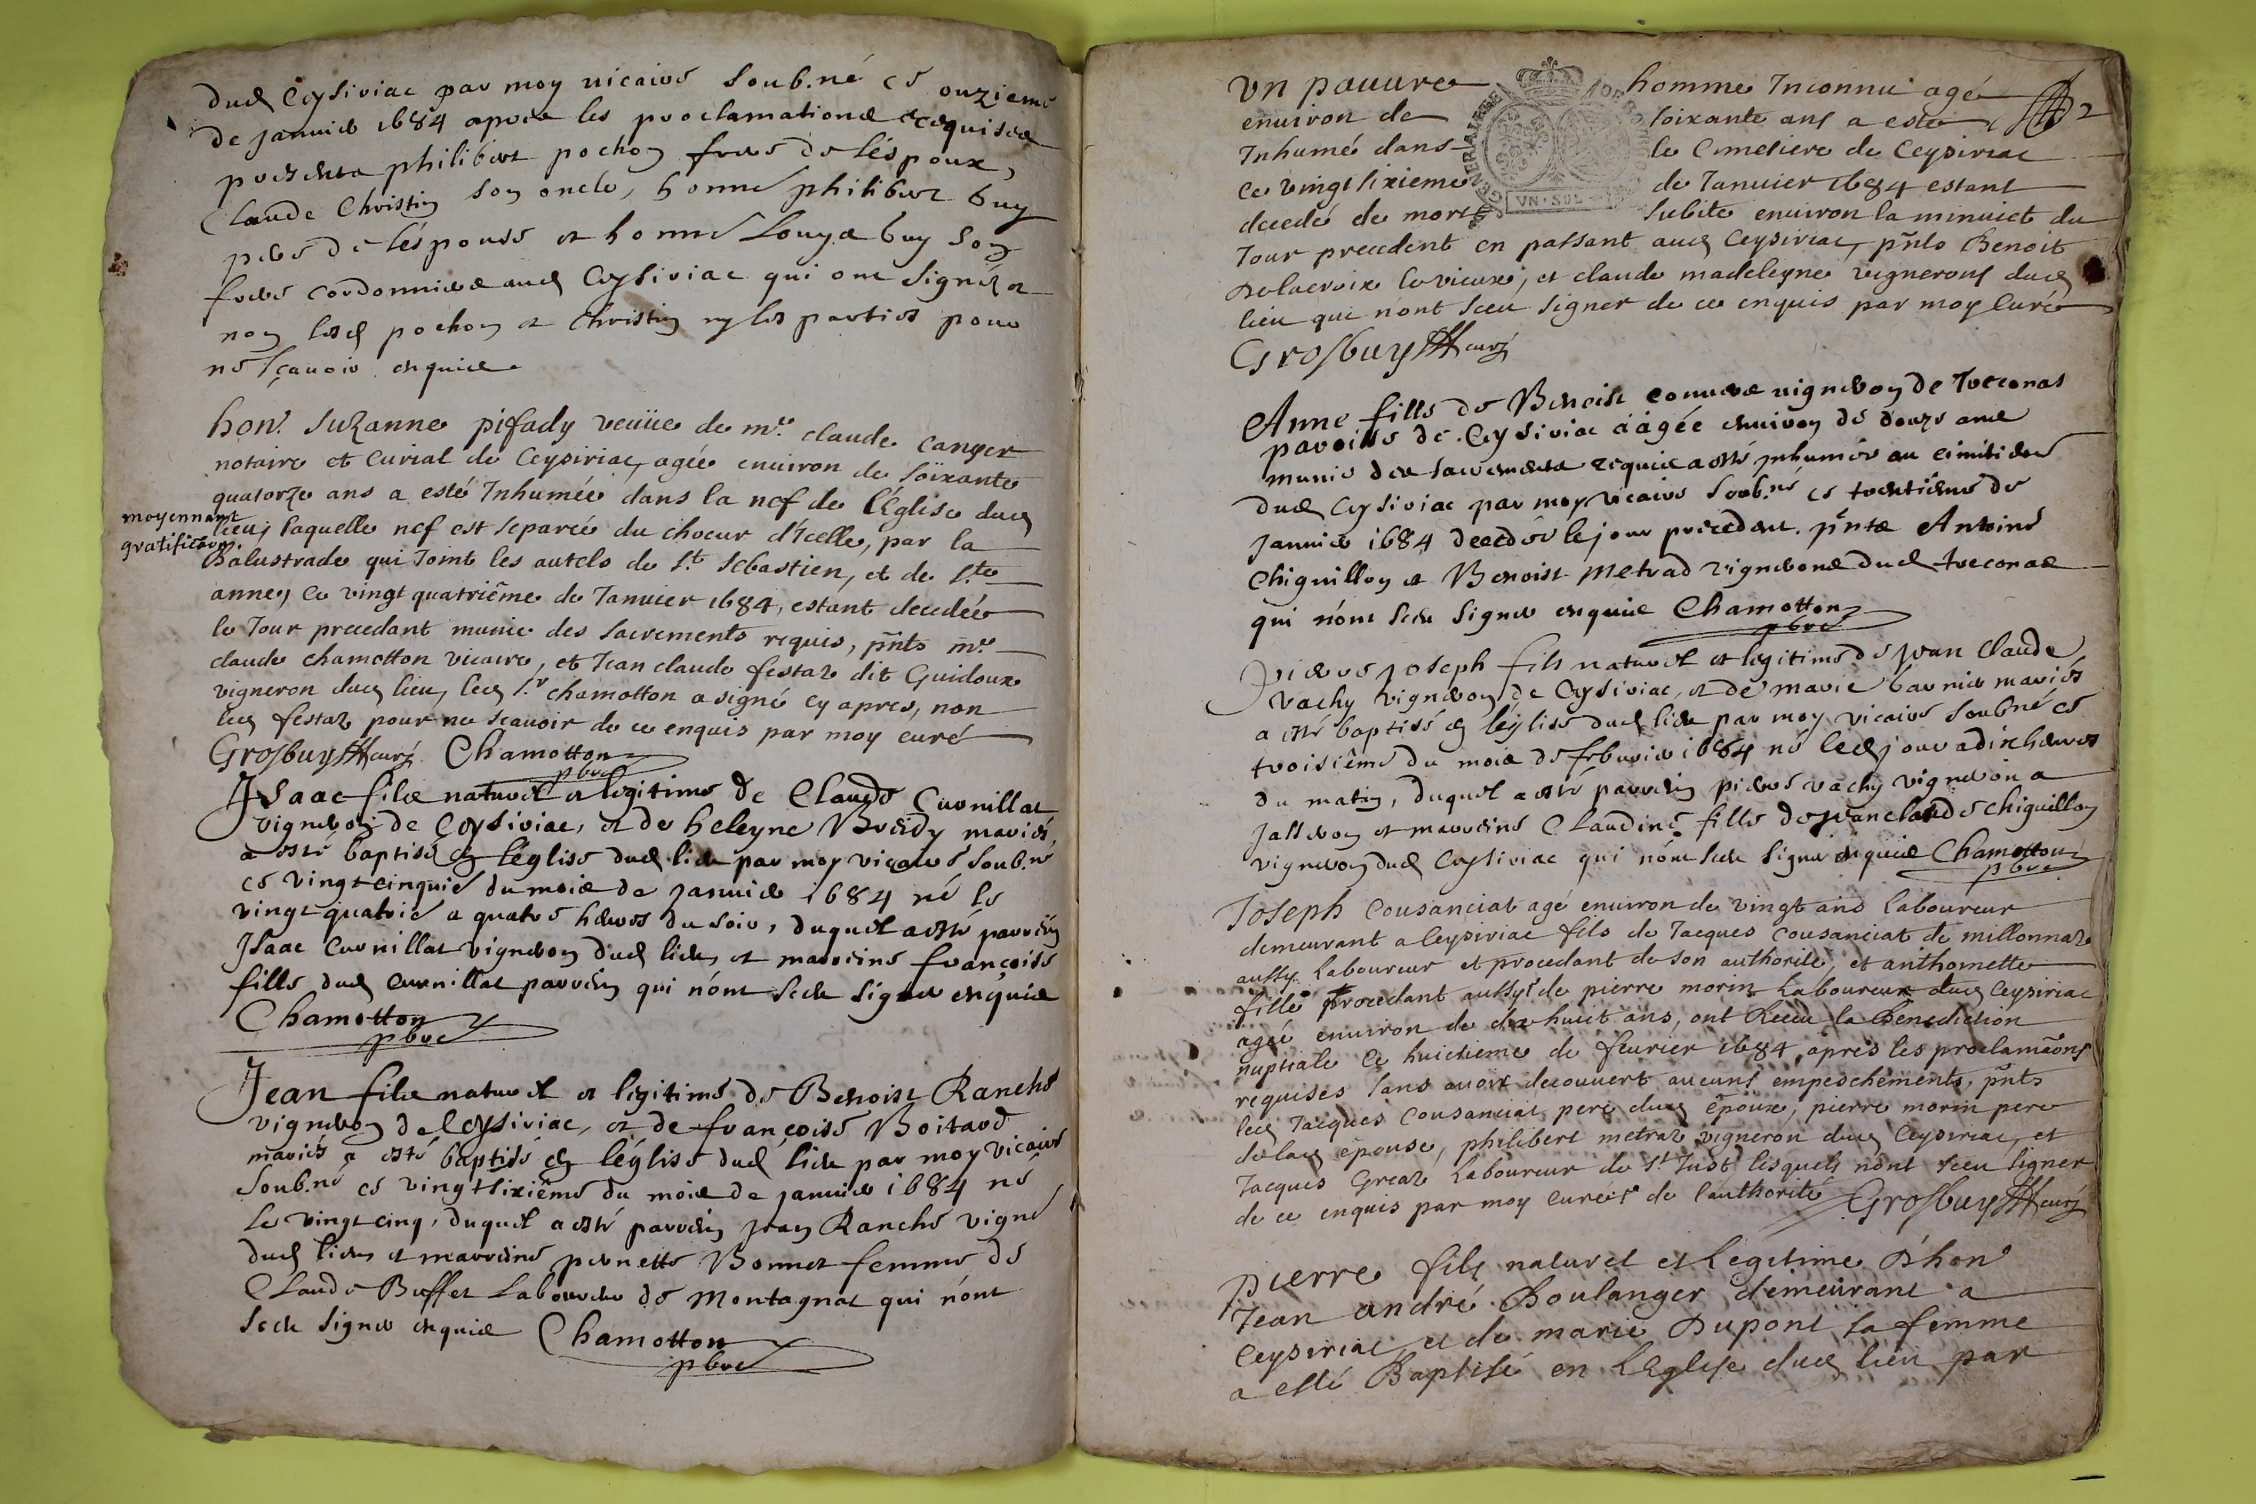 dud Ceysiriac par moy vicaire soub.né ce onzieme
de januier 1684 apres les proclamations requises
presents philibert pochon frere de léspoux,
Claude Christin son oncle, honne philibert buy
pere de léspouse et honne Louys buy son
frere cordonniers aud Ceysiriac qui ont signéz et
non lesd pochon et Christin ny les parties pour
ne sçauoir enquis
hon. Suzanne pifady veuüe de mre. claude canyer
notaire et curial de Ceysiriac, agée enuiron de soixante
quatorze ans a esté Inhumée dans la nef de l'Eglise dud
moyennant
gratification.
lieu, laquelle nef est separée du choeur d'Icelle, par la
Balustrade qui Joint les autels de St. Sebastien, et de Ste.
anne, ce vingt quatriême de Januier 1684, estant decedée
le Jour precedant munie des sacrements requis, pñts mre.
claude chamotton vicaire, et Jean claude festaz dit Guidoux
vigneron dud lieu, led Sr. chamotton a signé cy apres, non
led festaz pour ne scauoir de ce enquis par moy curé
Grosbuy curé Chamotton
pbre
Isaac fils naturel et legitime de Claude Curnillat
vigneron de Ceysiriac, et de heleyne Brendy mariés,
a esté baptisé en l'église dud lieu par moy vicaire soub.né
ce vingt cinquie du mois de januier 1684 né le
vingt quatrie a quatre heures du soir, duquel a esté parrein
Isaac Curnillat vigneron dud lieu, et marreine françoise
fille dud curnillat parrein qui n'ont sceu signer enquis
Chamotton
pbre
Jean fils naturel et legitime de Benoist Ranche
vigneron de Ceysiriac, et de françoise Boitard
mariés a esté baptisé en l'église dud lieu par moy vicaire
soub.né ce vingt sixiême du mois de januier 1684 né
le vingt cinq, duquel a esté parrein jean Ranche vigne
dud lieu et marreine pernette Bonnet femme de
Claude Buffet Laboureur de Montagnat qui n'ont
sceu signer enquis Chamotton
pbre
Vn pauure homme Inconnu agé 2
enuiron de soixante ans a esté
Inhumé dans le Cimetiere de Ceysiriac
ce vingt sixieme de Januier 1684 estant
decedé de mort subite enuiron la minuict du
VN·SOL
Jour precedent en passant aud Ceysiriac, pñts Benoit
Delacroix le vieux, et claude madeleyne vignerons dud
lieu qui n'ont sceu signer de ce enquis par moy Curé
Grosbuy curé
Anne fille de Benoist conuers vigneron de Treconas
paroisse de Ceysiriac aâgée enuiron de douze ans
munie des sacrements requis a esté jnhumée au cimitiere
dud Ceysiriac par moy vicaire soub.né ce trentieme de
januier 1684 decedée le jour precedent. pñts Antoine
Chiguillon et Benoist Metrad vignerons dud treconas
qui n'ont sceu signer enquis Chamotton
pbre
Pierre joseph fils naturel et legitime de jean Claude
vachy vigneron de Ceysiriac, et de marie barnier mariés
a esté baptisé en l'église dud lieu par moy vicaire soub.né ce
troisiême du mois de feburier 1684 né led jour a dix heures
du matin, duquel a esté parrein pierre vachy vigneron a
jasseron et marreine Claudine fille de jean claude Chiguillon
vigneron dud Ceysiriac qui n'ont sceu signer enquis Chamotton
pbre
Joseph Cousanciat agé enuiron de vingt ans laboureur
demeurant a Ceysiriac fils de Jacques Cousanciat de millonnaz
aussy laboureur et procedant de son authorité, et anthomette
fille procedant aussy de pierre morin Laboureur dud Ceysiriac
agée enuiron de dix huict ans, ont Receu la Benediction
nuptiale ce huictieme de feurier 1684, apres les proclamaõns
requises sans auoir decouuert aucuns empeschements, pñts
led Jacques Cousanciat pere dud êpoux, pierre morin pere
de lad êpouse, philibert metraz vigneron dud Ceysiriac, et
Jacques Greaz Laboureur de St. Just lesquels n'ont sceu signer
de ce enquis par moy curé de l'authorité Grosbuy curé
pierre fils naturel et Legitime d'hon
Jean andré Boulanger demeurant a
Ceysiriac et de marie Dupont sa femme
a esté Baptisé en l'Eglise dud lieu par